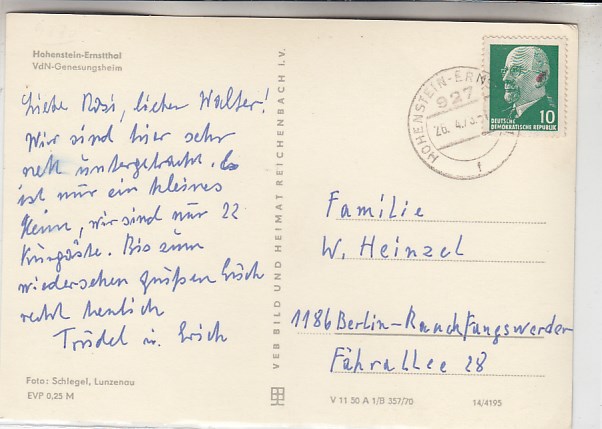 Hohenstein-Ernstthal
VdN-Genesungsheim
Liebe Rosi, lieber Walter!
Wir sind hier sehr
nett untergebracht. Es
ist nur ein kleines
Heim, wir sind nur 22
Kurgäste. Bis zum
wiedersehen grüßen Euch
recht herzlich
Trudel u. Erich
Foto: Schlegel, Lunzenau
EVP 0,25 M
VEB BILD UND HEIMAT REICHENBACH I.V.
HOHENSTEIN-ERNS
927
26. 4.73
f
10
DEUTSCHE
DEMOKRATISCHE REPUBLIK
Familie
W. Heinzel
1186 Berlin-Rauchfangswerder
Fährallee 28
V 11 50 A 1/B 357/70
14/4195